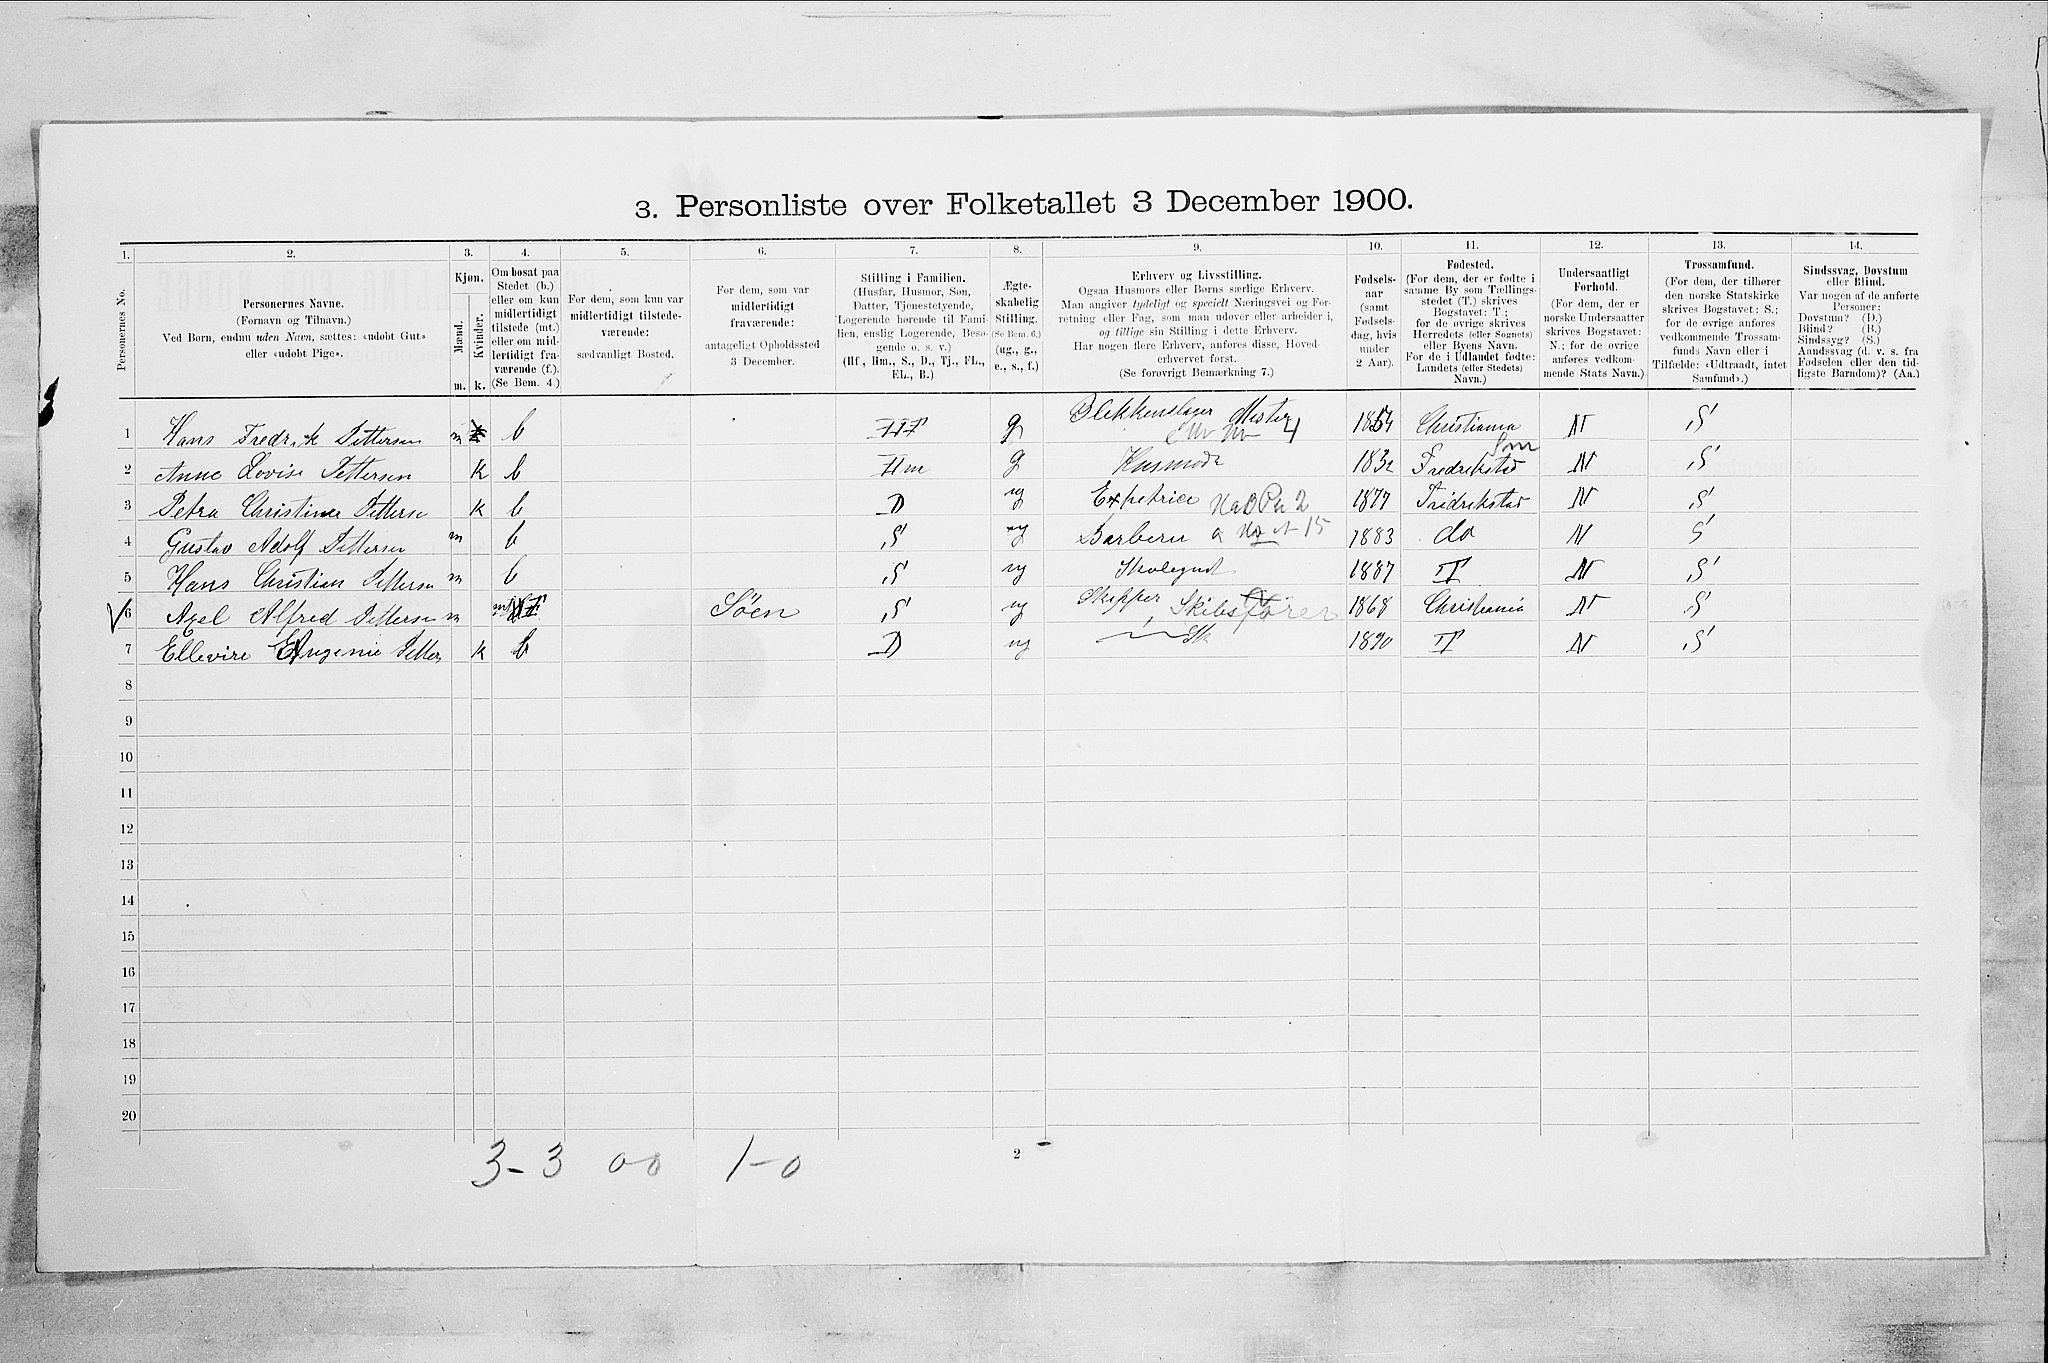 3. Personliste over Folketallet 3 December 1900.
1. 2. 3. 4. 5. 6. 7. 8. 9. 10. 11. 12. 13. 14.
Personernes No.
Personernes Navne.
(Fornavn og Tilnavn.)
Ved Børn, endnu uden Navn, sættes: «udøbt Gut»
eller «udøbt Pige».
Kjøn.
Mænd.
Kvinder.
m. k.
Om bosat paa
Stedet (b.)
eller om kun
midlertidigt
tilstede (mt.)
eller om mid-
lertidigt fra-
værende (f.)
(Se Bem. 4.)
For dem, som kun var
midlertidigt tilstede-
værende:
sædvanligt Bosted.
For dem, som var
midlertidigt
fraværende:
antageligt Opholdssted
3 December.
Stilling i Familien.
(Husfar, Husmor, Søn,
Datter, Tjenestetyende,
Logerende hørende til Fami-
lien, enslig Logerende, Besø-
gende o. s. v.)
(Hf, Hm., S., D., Tj., FL.,
EL., B.)
Ægte-
skabelig
Stilling.
(Se Bem. 6.)
(ug., g.,
e., s., f.)
Erhverv og Livsstilling.
Ogsaa Husmors eller Børns særlige Erhverv.
Man angiver tydeligt og specielt Næringsvei og For-
retning eller Fag, som man udøver eller arbeider i,
og tillige sin Stilling i dette Erhverv.
Har nogen flere Erhverv, anføres disse, Hoved-
erhvervet først.
(Se forøvrigt Bemærkning 7.)
Fødsels-
aar
(samt
Fødsels-
dag, hvis
under
2 Aar).
Fødested.
(For dem, der er fødte i
samme By som Tællings-
stedet (T.) skrives
Bogstavet: T;
for de øvrige skrives
Herredets (eller Sognets)
eller Byens Navn.
For de i Udlandet fødte:
Landets (eller Stedets)
Navn.)
Undersaatligt
Forhold.
(For dem, der er
norske Undersaatter
skrives Bogstavet:
N.; for de øvrige
anføres vedkom-
mende Stats Navn.)
Trossamfund.
(For dem, der tilhører
den norske Statskirke
skrives Bogstavet: S.;
for de øvrige anføres
vedkommende Trossam-
funds Navn eller i
Tilfælde: «Udtraadt, intet
Samfund».)
Sindssvag, Døvstum
eller Blind.
Var nogen af de anførte
Personer:
Døvstum? (D.)
Blind? (B.)
Sindssyg? (S.)
Aandssvag (d. v. s. fra
Fødselen eller den tid-
ligste Barndom)? (Aa.)
1 Hans Fredrik Pettersen m b Hf g Blikkenslager Mester 1854 Christiania N S
2 Anne Lovise Pettersen k b Hm g Husmoder 1832 Fredrikstad N S
3 Petra Christine Petterse k b D ug Expetrice 1877 Fridrikstad N S
4 Gustav Adolf Pettersen m b S ug Barberer 1883 do N S
5 Hans Christian Pettersen m b S ug Skolegut 1887 T N S
6 Axel Alfred Pettersen m f Søen S ug Skipper, Skibsfører 1868 Christiania N S
7 Ellevire Eugenie Petters k b D ug Sk 1890 T N S
8
9
10
11
12
13
14
15
16
17
18
19
20
3-3 0-0 1-0
2